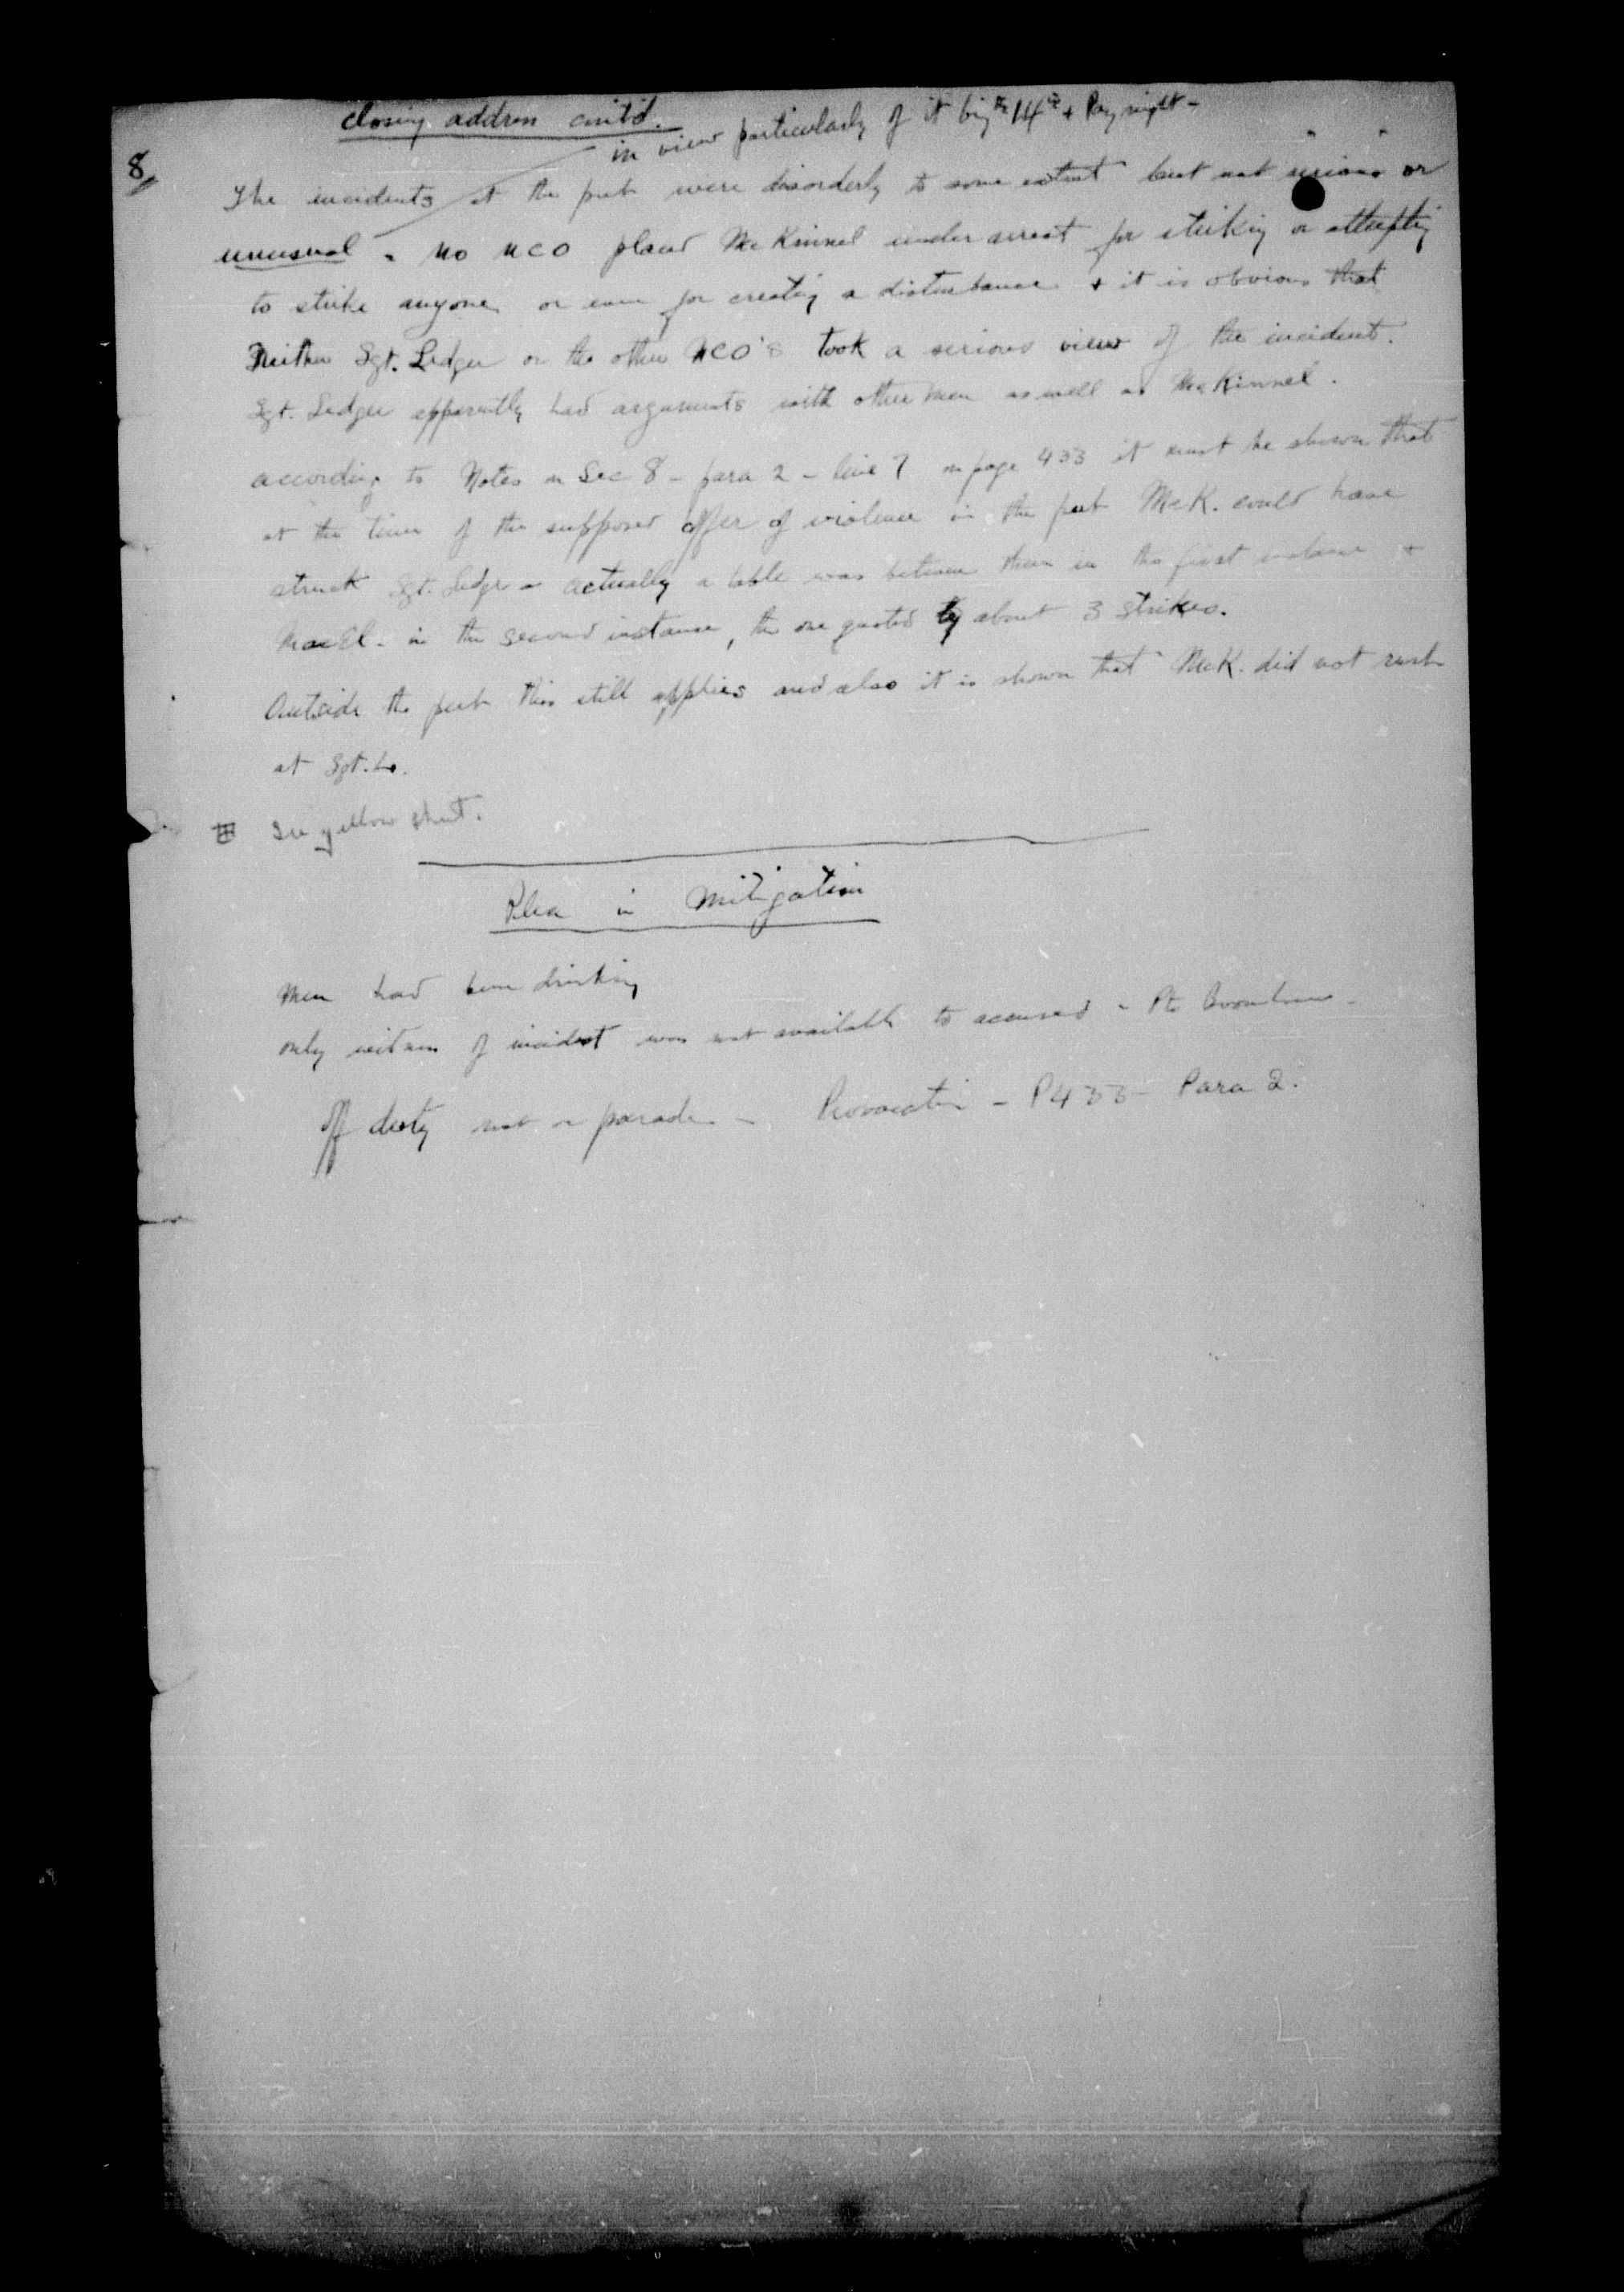 closing address cont'd.
in view particularly of it big the 14th + Pay night -
8/
The incidents at the pub were disorderly to some extent but not serious or
unusual - No NCO placed McKinnel under arrest for striking or attempting
to strike anyone or even for creating a disturbance + it is obvious that
Neither Sgt. Ledger or the other NCO's took a serious view of the incident.
Sgt. Ledger apparently had arguments with other men as well as McKinnel.
according to Notes on Sec 8 - para 2 - line 7 on page 433 it must be shown that
at the time of the supposed offer of violence in the pub McK. could have
struck Sgt. Ledger - actually a table was between them in the first instance +
in the second instance, the one quoted by about 3 strikes.
Outside the pub this still applies and also it is shown that McK. did not rush
at Sgt. L.
See yellow sheet.
Plea in Mitigation
Men had been drinking
only witness of incident was not available to accused - Pte
off duty not on parade - Provocation - P433 - Para 2.